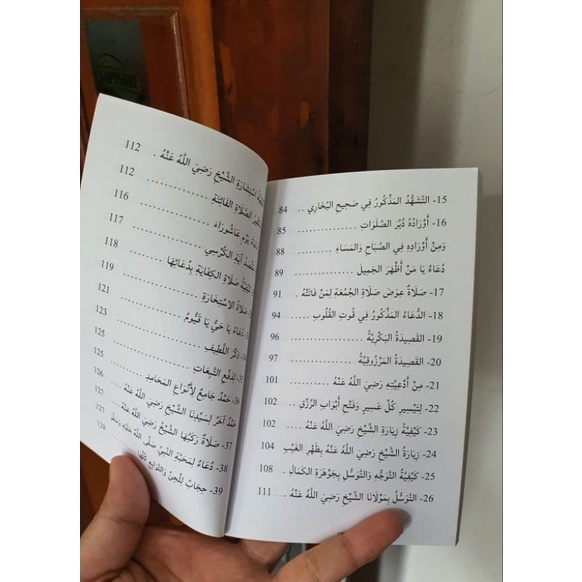 15- التَّشَهُّدُ المَذْكُورُ فِي صَحِيحِ البُخَارِي ... 84
16- أَوْرَادُهُ دُبُرَ الصَّلَوَاتِ ............... 85
وَمِنْ أَوْرَادِهِ فِي الصَّبَاحِ وَالمَسَاءِ ........... 88
دُعَاءُ يَا مَنْ أَظْهَرَ الجَمِيلَ ................ 89
17- صَلَاةٌ عِوَضَ صَلَاةِ الجُمُعَةِ لِمَنْ فَاتَتْهُ . 91
18- الدُّعَاءُ المَذْكُورُ فِي قُوتِ القُلُوبِ ...... 94
19- القَصِيدَةُ البَكْرِيَّةُ ................ 96
20- القَصِيدَةُ المَرْزُوقِيَّةُ ............... 97
21- مِنْ أَدْعِيَتِهِ رَضِيَ اللَّهُ عَنْهُ ........... 101
22- لِتَيْسِيرِ كُلِّ عَسِيرٍ وَفَتْحِ أَبْوَابِ الرِّزْقِ .. 102
23- كَيْفِيَّةُ زِيَارَةِ الشَّيْخِ رَضِيَ اللَّهُ عَنْهُ .... 102
24- زِيَارَةُ الشَّيْخِ رَضِيَ اللَّهُ عَنْهُ بِظَهْرِ الغَيْبِ 104
25- كَيْفِيَّةُ التَّوَجُّهِ وَالتَّوَسُّلِ بِجَوْهَرَةِ الكَمَالِ . 108
26- التَّوَسُّلُ بِمَوْلَانَا الشَّيْخِ رَضِيَ اللَّهُ عَنْهُ .. 111
اسْتِشَارَةِ الشَّيْخِ رَضِيَ اللَّهُ عَنْهُ . 112
الصَّلَاةِ الفَائِتَةِ ............ 112
يَوْمِ عَاشُورَاءَ ............ 116
آيَةِ الكُرْسِي ............ 117
كَيْفِيَّةُ صَلَاةِ الكِفَايَةِ بِدُعَائِهَا ...... 118
صَلَاةُ الاِسْتِخَارَةِ ............ 119
دُعَاءُ يَا حَيُّ يَا قَيُّومُ ............ 121
ذِكْرُ اللَّطِيفِ ............ 123
لِدَفْعِ التَّبِعَاتِ ............ 125
36- حَمْدٌ جَامِعٌ لِأَنْوَاعِ المَحَامِدِ ...... 125
حَمْدٌ آخَرُ لِسَيِّدِنَا الشَّيْخِ رَضِيَ اللَّهُ عَنْهُ . 125
37- صَلَاةٌ رَكَّبَهَا الشَّيْخُ رَضِيَ اللَّهُ عَنْهُ .. 127
38- دُعَاءٌ لِمَحَبَّةِ النَّبِيِّ صَلَّى اللَّهُ عَلَيْهِ وَسَلَّمَ 127
39- حِجَابٌ لِلْجِنِّ وَالتَّوَابِعِ كُلِّهَا